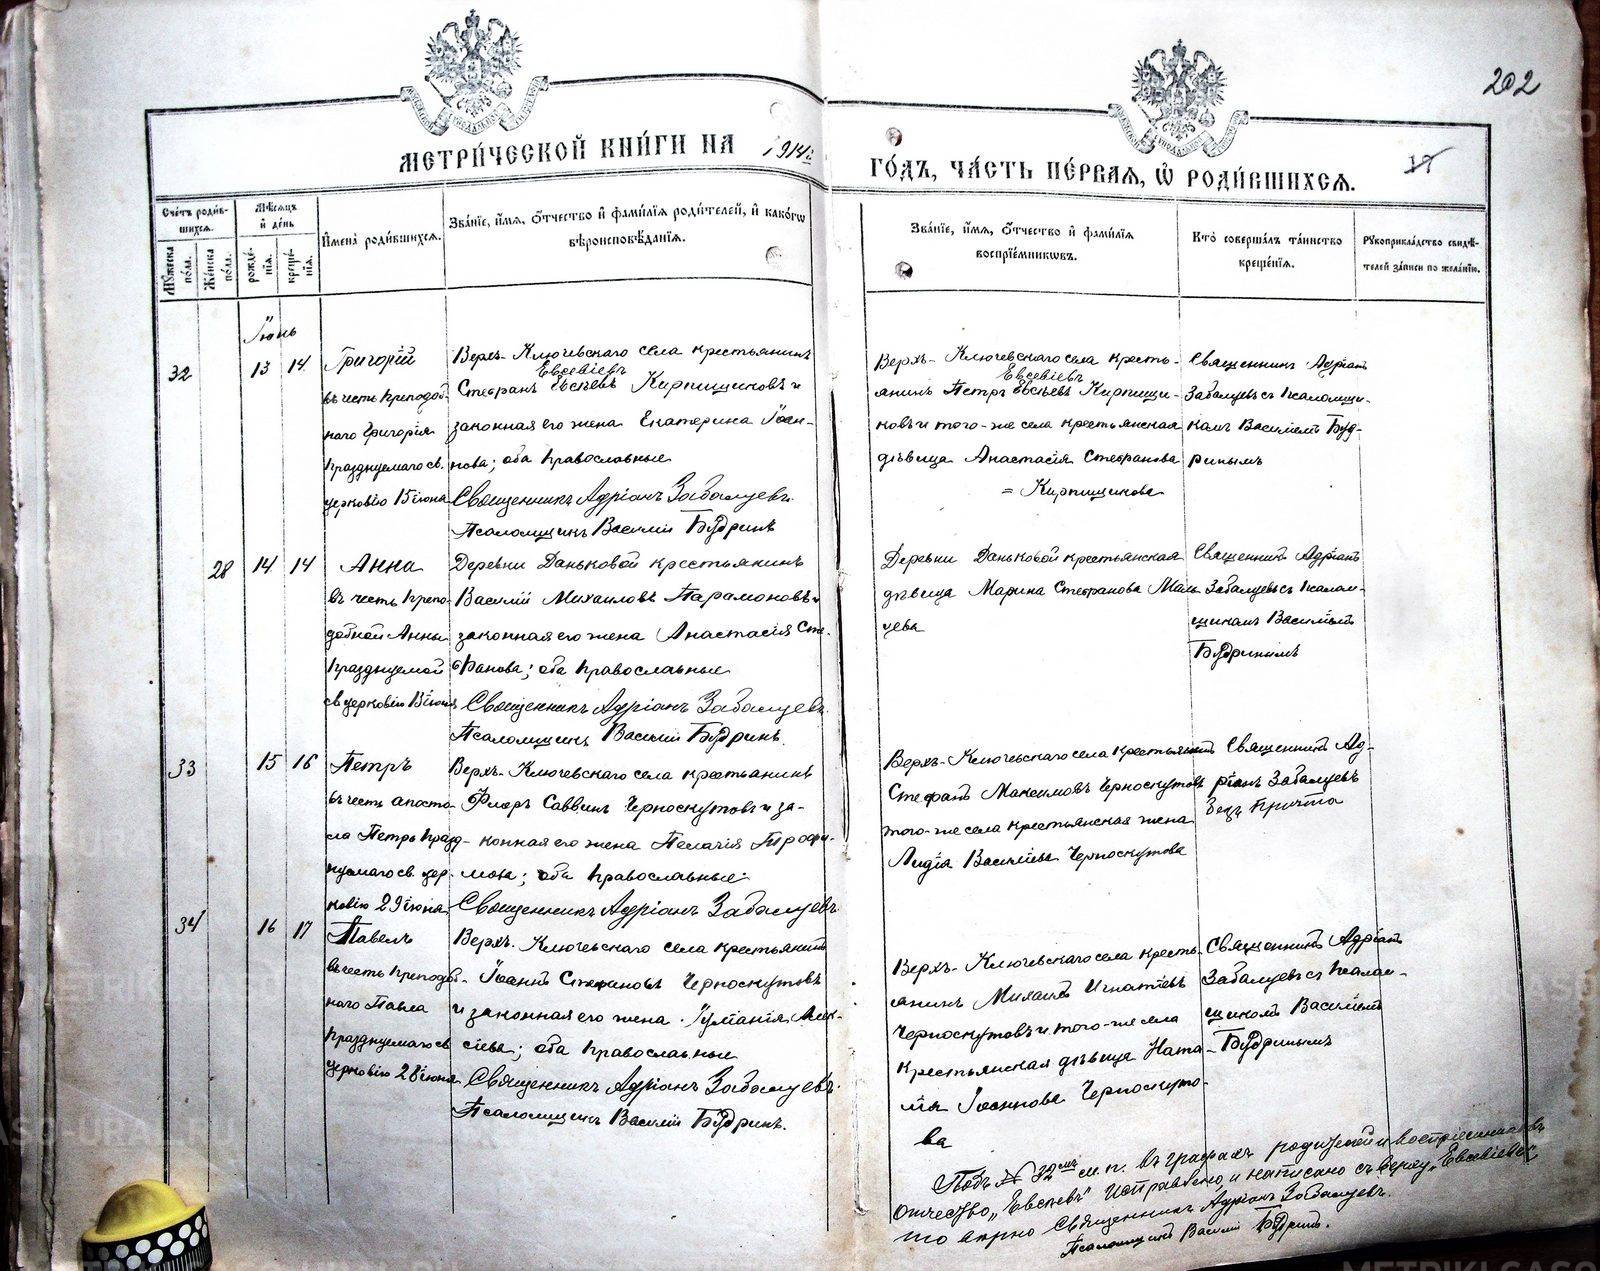 202
МЕТРИ́ЧЕСКОЙ КНИ́ГИ НА 1914й ГО́ДЪ, ЧА́СТЬ ПЕ́РВАЯ, Ѡ РОДИ́ВШИХСЯ.
Сче́тъ роди́в-
шихся.
Му́жеска по́ла.
Же́нска по́ла.
Мѣ́сяцъ и де́нь
рожде́-
нїя.
креще́-
нїя.
И́мена роди́вшихся.
Зва́нїе, и́мя, о́тчество и фами́лїя роди́телей, и како́гѡ
вѣроисповѣ́данїя.
Зва́нїе, и́мя, о́тчество и фами́лїя
воспрїе́мниковъ.
Кто̀ соверша́лъ та́инство
креще́нїя.
Рукоприкла́дство свидѣ́-
телей за́писи по жела́нїю.
Іюнь
32
13
14
Григорій
въ честь препод.
наго Григорія
празднуемаго св.
церковію 15 іюня
Верхъ-Ключевскаго села крестьянинъ
Евсевіевъ
Стефанъ Евсѣевъ Кирпищиковъ и
законная его жена Екатерина Іоан-
нова; оба православные
Священникъ Адріанъ Забалуевъ.
Псаломщикъ Василій Будринъ
Верхъ-Ключевскаго села кресть-
Евсевіевъ
янинъ Петръ Евсѣевъ Кирпищи-
ковъ и того-же села крестьянская
дѣвица Анастасія Стефанова
= Кирпищикова
Священникъ Адріанъ
Забалуевъ съ псаломщи-
комъ Василіемъ Буд-
ринымъ
28
14
14
Анна
въ честь препо-
добной Анны
празднуемой
св. церковію 13 іюня
Деревни Даньковой крестьянинъ
Василій Михаиловъ Парамоновъ и
законная его жена Анастасія Сте-
фанова; оба православные
Священникъ Адріанъ Забалуевъ.
Псаломщикъ Василій Будринъ.
Деревни Даньковой крестьянская
дѣвица Марина Стефанова Маль
цева
Священникъ Адріанъ
Забалуевъ съ псалом-
щикомъ Василіемъ
Будринымъ
33
15
16
Петръ
въ честь апосто-
ла Петра празд-
нуемаго св. цер-
ковію 29 іюня
Верхъ-Ключевскаго села крестьянинъ
Флоръ Саввинъ Черноскутовъ и за-
конная его жена Пелагія Трофи-
мова; оба православные
Священникъ Адріанъ Забалуевъ.
Верхъ-Ключевскаго села крестьянинъ
Стефанъ Максимовъ Черноскутовъ
того-же села крестьянская жена
Лидія Василіева Черноскутова
Священникъ Ад-
ріанъ Забалуевъ
безъ причта
34
16
17
Павелъ
въ честь преподоб-
наго Павла
празднуемаго св
церковію 28 іюня
Верхъ-Ключевскаго села крестьянинъ
Іоаннъ Стефановъ Черноскутовъ
и законная его жена Іуліанія Алек-
сіева; оба православные
Священникъ Адріанъ Забалуевъ.
Псаломщикъ Василій Будринъ.
Верхъ-Ключевскаго села кресть-
янинъ Михаилъ Игнатіевъ
Черноскутовъ и того-же села
крестьянская дѣвица Ната-
лія Іоаннова Черноскуто-
ва
Священникъ Адріанъ
Забалуевъ съ псалом-
щикомъ Василіемъ
Будринымъ
Подъ № 32мъ м.п. въ графахъ родителей и воспріемниковъ
отчество „Евсѣевъ" исправлено и написано съ верху „Евсевіевъ"
то вѣрно Священникъ Адріанъ Забалуевъ.
Псаломщикъ Василій Будринъ.